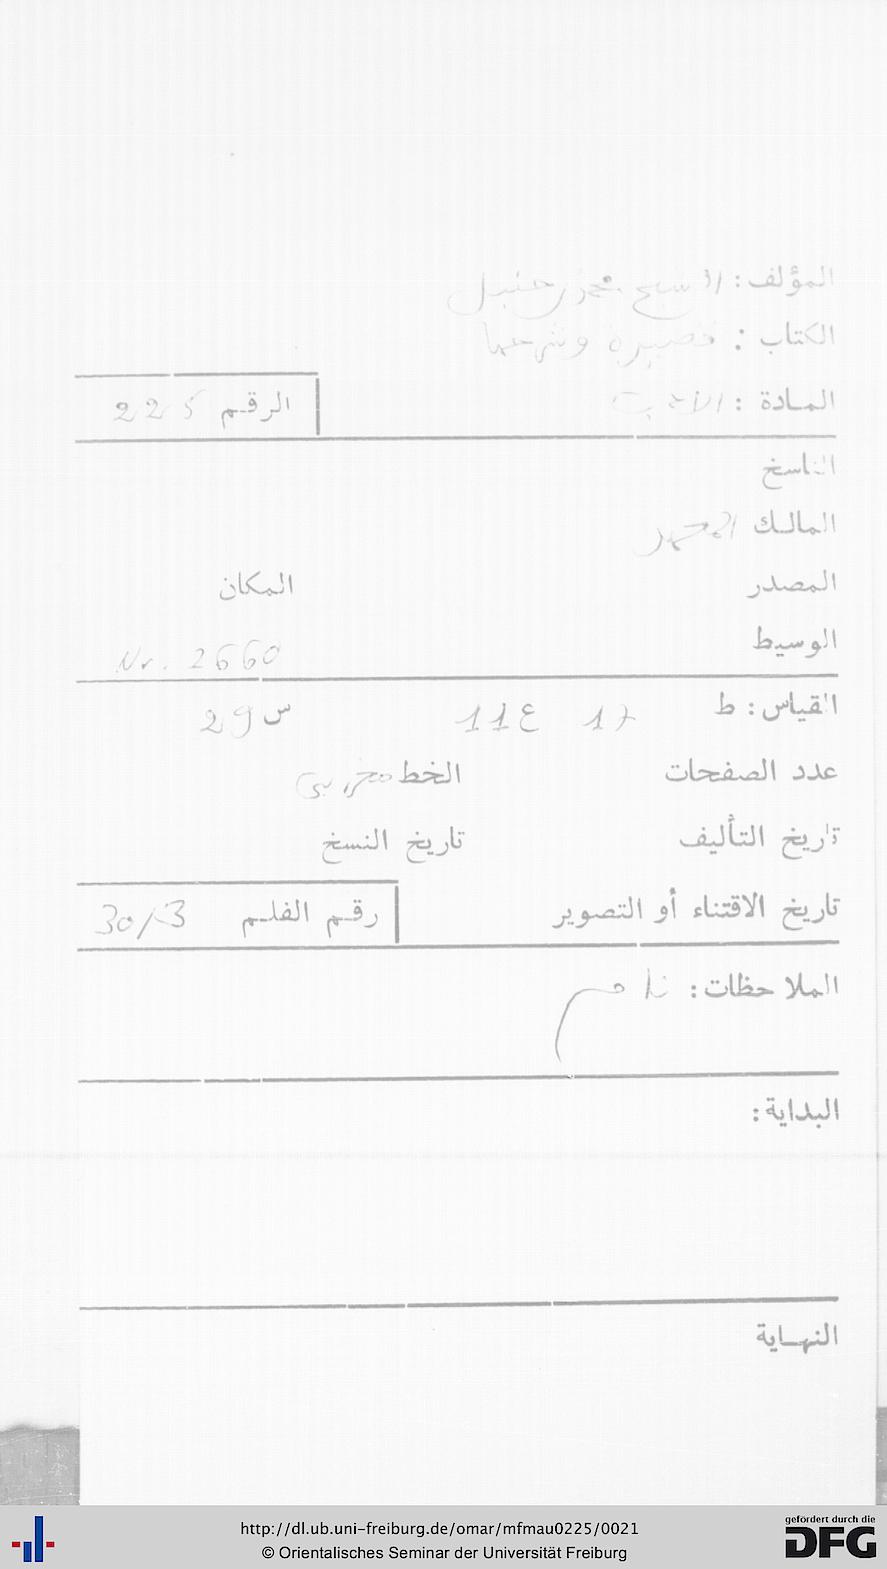 المؤلف: الشيخ محمد بن حنبل
الكتاب: قصيدة وشرحها
المادة: الأدب
الرقم 225
الناسخ
المالك المحمد
المصدر
المكان
الوسيط
Nr. 2660
القياس: ط 17 ع 11 س 29
عدد الصفحات
الخط مغربي
تاريخ التأليف
تاريخ النسخ
تاريخ الاقتناء أو التصوير
رقم الفلم 30/3
الملاحظات: تام
البداية:
النهاية
http://dl.ub.uni-freiburg.de/omar/mfmau0225/0021
© Orientalisches Seminar der Universität Freiburg
gefördert durch die
DFG